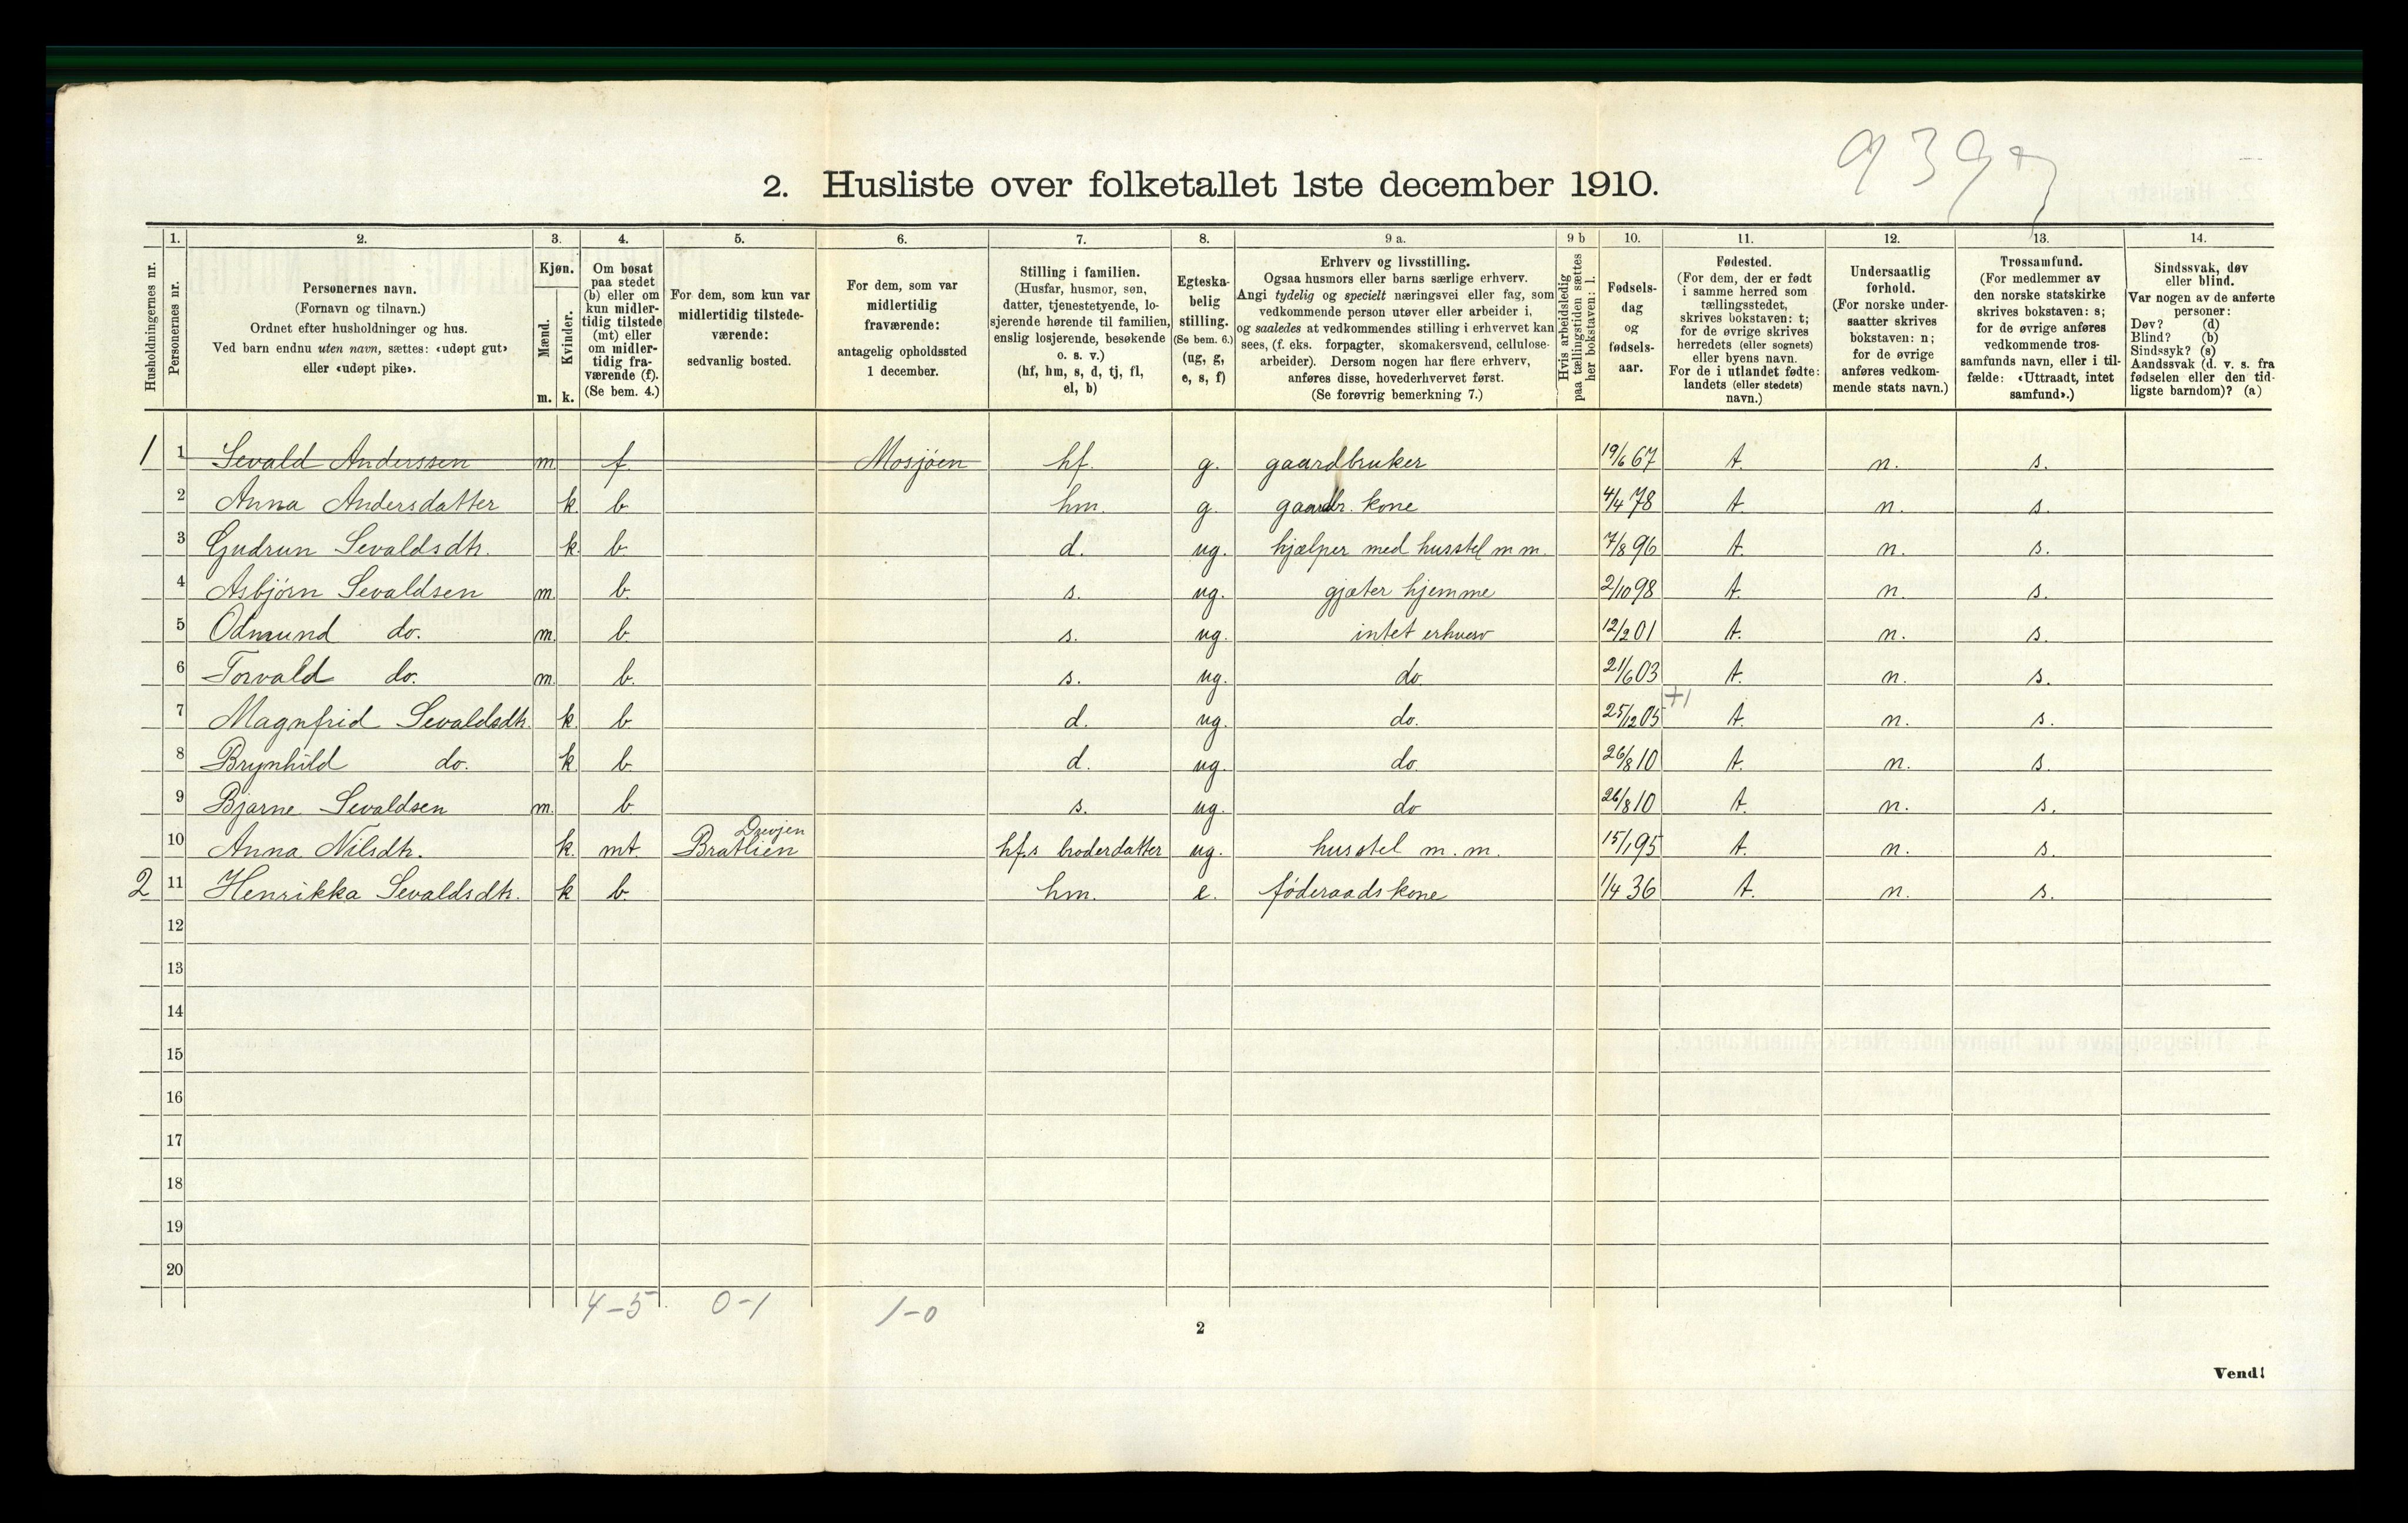 939
2. Husliste over folketallet 1ste december 1910.
Husholdningernes nr.
1. Personernes nr.
2. Personernes navn.
(Fornavn og tilnavn.)
Ordnet efter husholdninger og hus.
Ved barn endnu uten navn, sættes: «udøpt gut»
eller «udøpt pike».
3. Kjøn.
Mænd. m.
Kvinder. k.
4. Om bosat
paa stedet
(b) eller om
kun midler-
tidig tilstede
(mt) eller
om midler-
tidig fra-
værende (f).
(Se bem. 4.)
5. For dem, som kun var
midlertidig tilstede-
værende:
sedvanlig bosted.
6. For dem, som var
midlertidig
fraværende:
antagelig opholdssted
1 december.
7. Stilling i familien.
(Husfar, husmor, søn,
datter, tjenestetyende, lo-
sjerende hørende til familien,
enslig losjerende, besøkende
o. s. v.)
(hf, hm, s, d, tj, fl,
el, b)
8. Egteska-
belig
stilling.
(Se bem. 6.)
(ug, g,
e, s, f)
9 a. Erhverv og livsstilling.
Ogsaa husmors eller barns særlige erhverv.
Angi tydelig og specielt næringsvei eller fag, som
vedkommende person utøver eller arbeider i,
og saaledes at vedkommendes stilling i erhvervet kan
sees, (f. eks. forpagter, skomakersvend, cellulose-
arbeider). Dersom nogen har flere erhverv,
anføres disse, hovederhvervet først.
(Se forøvrig bemerkning 7.)
9 b Hvis arbeidsledig
paa tællingstiden sættes
her bokstaven: l.
10. Fødsels-
dag
og
fødsels-
aar.
11. Fødested.
(For dem, der er født
i samme herred som
tællingsstedet,
skrives bokstaven: t;
for de øvrige skrives
herredets (eller sognets)
eller byens navn.
For de i utlandet fødte:
landets (eller stedets)
navn.)
12. Undersaatlig
forhold.
(For norske under-
saatter skrives
bokstaven: n;
for de øvrige
anføres vedkom-
mende stats navn.)
13. Trossamfund.
(For medlemmer av
den norske statskirke
skrives bokstaven: s;
for de øvrige anføres
vedkommende tros-
samfunds navn, eller i til-
fælde: «Uttraadt, intet
samfund».)
14. Sindssvak, døv
eller blind.
Var nogen av de anførte
personer:
Døv? (d)
Blind? (b)
Sindssyk? (s)
Aandssvak (d. v. s. fra
fødselen eller den tid-
ligste barndom)? (a)
1 1 Sevald Anderssen m. f. Mosjøen hf. g. gaardbruker 19/6 67 t. n. s.
2 Anna Andersdatter k. b. hm. g. gaardbr. kone 4/4 78 t. n. s.
3 Gudrun Sevaldsdtr. k. b. d. ug. hjælper med husstel m m. 7/8 96 t. n. s.
4 Asbjørn Sevaldsen m. b. s. ug. gjæter hjemme 2/10 98 t. n. s.
5 Odmund do. m. b. s. ug. intet erhverv 12/2 01 t. n. s.
6 Torvald do. m. b. s. ug. do. 21/6 03 t. n. s.
+1
7 Magnfrid Sevaldsdtr. k. b. d. ug. do. 25/12 05 t. n. s.
8 Brynhild do. k. b. d. ug. do. 26/8 10 t. n. s.
9 Bjarne Sevaldsen m. b. s. ug. do 26/8 10 t. n. s.
Drevjen
10 Anna Nilsdtr. k. mt. Bratlien hf.s broderdatter ug. husstel m. m. 15/1 95 t. n. s.
2 11 Henrikka Sevaldsdtr. k b. hm. e. føderaadskone 1/4 36 t. n. s.
12
13
14
15
16
17
18
19
20
4-5 0-1 1-0
2
Vend!